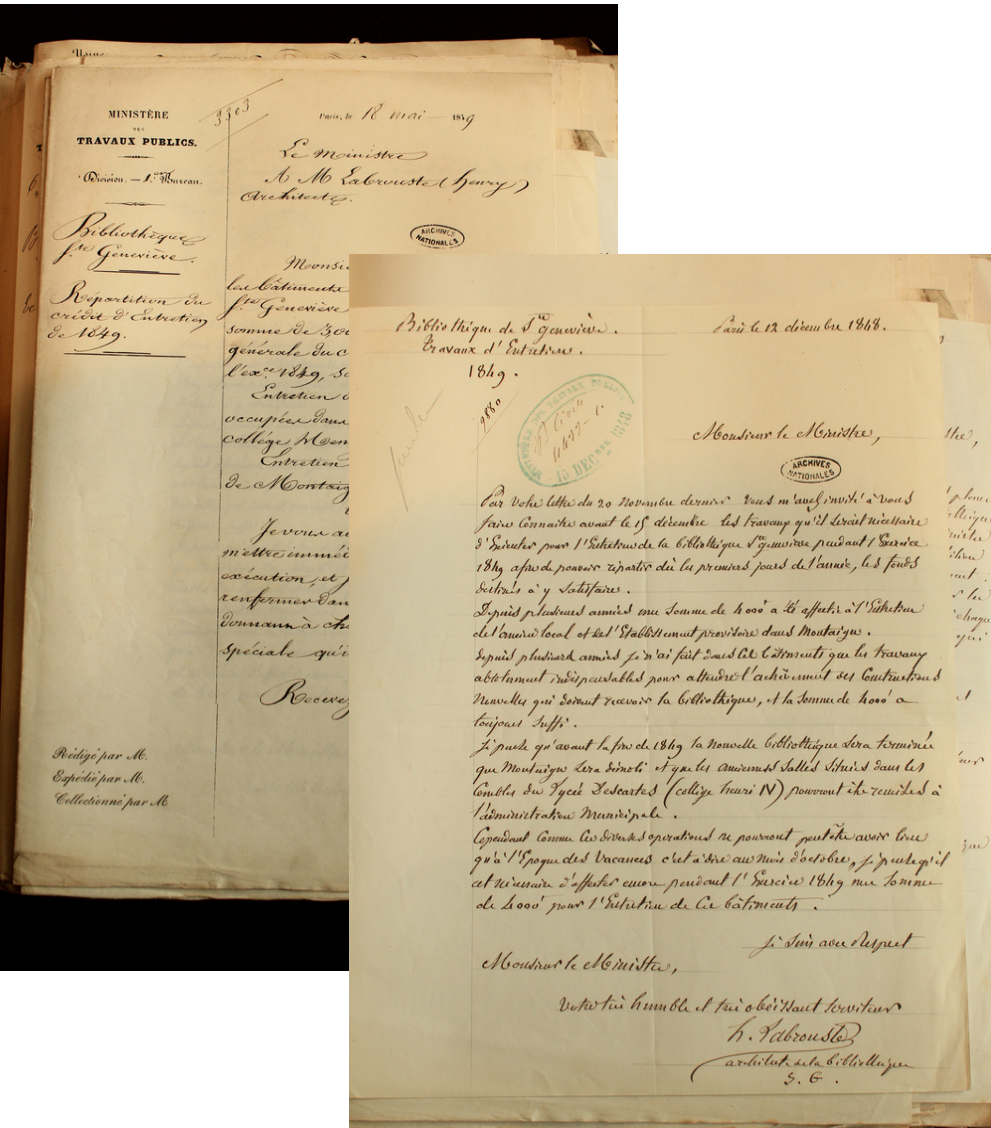 MINISTÈRE
DES
TRAVAUX PUBLICS.
Division. — 1.er Bureau.
3303
Paris, le 18 mai 1849
Le Ministre
A M Labrouste (henry)
Architecte.
ARCHIVES
NATIONALES
Bibliothèque
Ste Geneviève.
Répartition du
crédit d'Entretien
de 1849.
Monsi
les bâtiments
Ste Geneviève
somme de 300
générale du c
l'exce 1849, se
Entretien d
occupées dans
collège Hen
Entretien
de Montaig
Je vous au
mettre immé
exécution, et
renfermer dan
donnant à ch
spéciale qu'i
Recevez
Rédigé par M.
Expédié par M.
Collectionné par M
Bibliothèque de Ste geneviève.
Travaux d'Entretien.
1849.
Paris le 12 décembre 1848.
9880
MINISTÈRE DES TRAVAUX PUBLICS
15 DÉCbre 1848
Monsieur le Ministre,
ARCHIVES
NATIONALES
Par votre lettre du 20 Novembre dernier vous m'avez invité à vous
faire connaitre avant le 15 décembre les travaux qu'il serait nécessaire
d'Exécuter pour l'Entretien de la bibliothèque Ste geneviève pendant l'Exercice
1849 afin de pouvoir répartir dès les premiers jours de l'année, les fonds
destinés à y satisfaire.
Depuis plusieurs années une somme de 4000f a été affectée à l'Entretien
de l'ancien local et de l'Etablissement provisoire dans Montaigu.
depuis plusieurs années je n'ai fait dans ces bâtiments que les travaux
absolument indispensables pour attendre l'achèvement des Constructions
Nouvelles qui doivent recevoir la bibliothèque, et la somme de 4000f a
toujours suffi.
Je pense qu'avant la fin de 1849 la Nouvelle bibliothèque sera terminée
que Montaigu sera démoli et que les anciennes salles situées dans les
Combles du Lycée Descartes (collège henri IV) pourront être remises à
l'administration Municipale.
Cependant Comme ces diverses opérations ne pourront peutêtre avoir lieu
qu'à l'Epoque des Vacances c'est à dire au mois d'octobre, je pense qu'il
est nécessaire d'affecter encore pendant l'Exercice 1849 une somme
de 4000f pour l'Entretien de Ces bâtiments.
Je suis avec Respect
Monsieur le Ministre,
votre très humble et très obéissant serviteur
h. Labrouste
architecte de la bibliothèque
S. G.